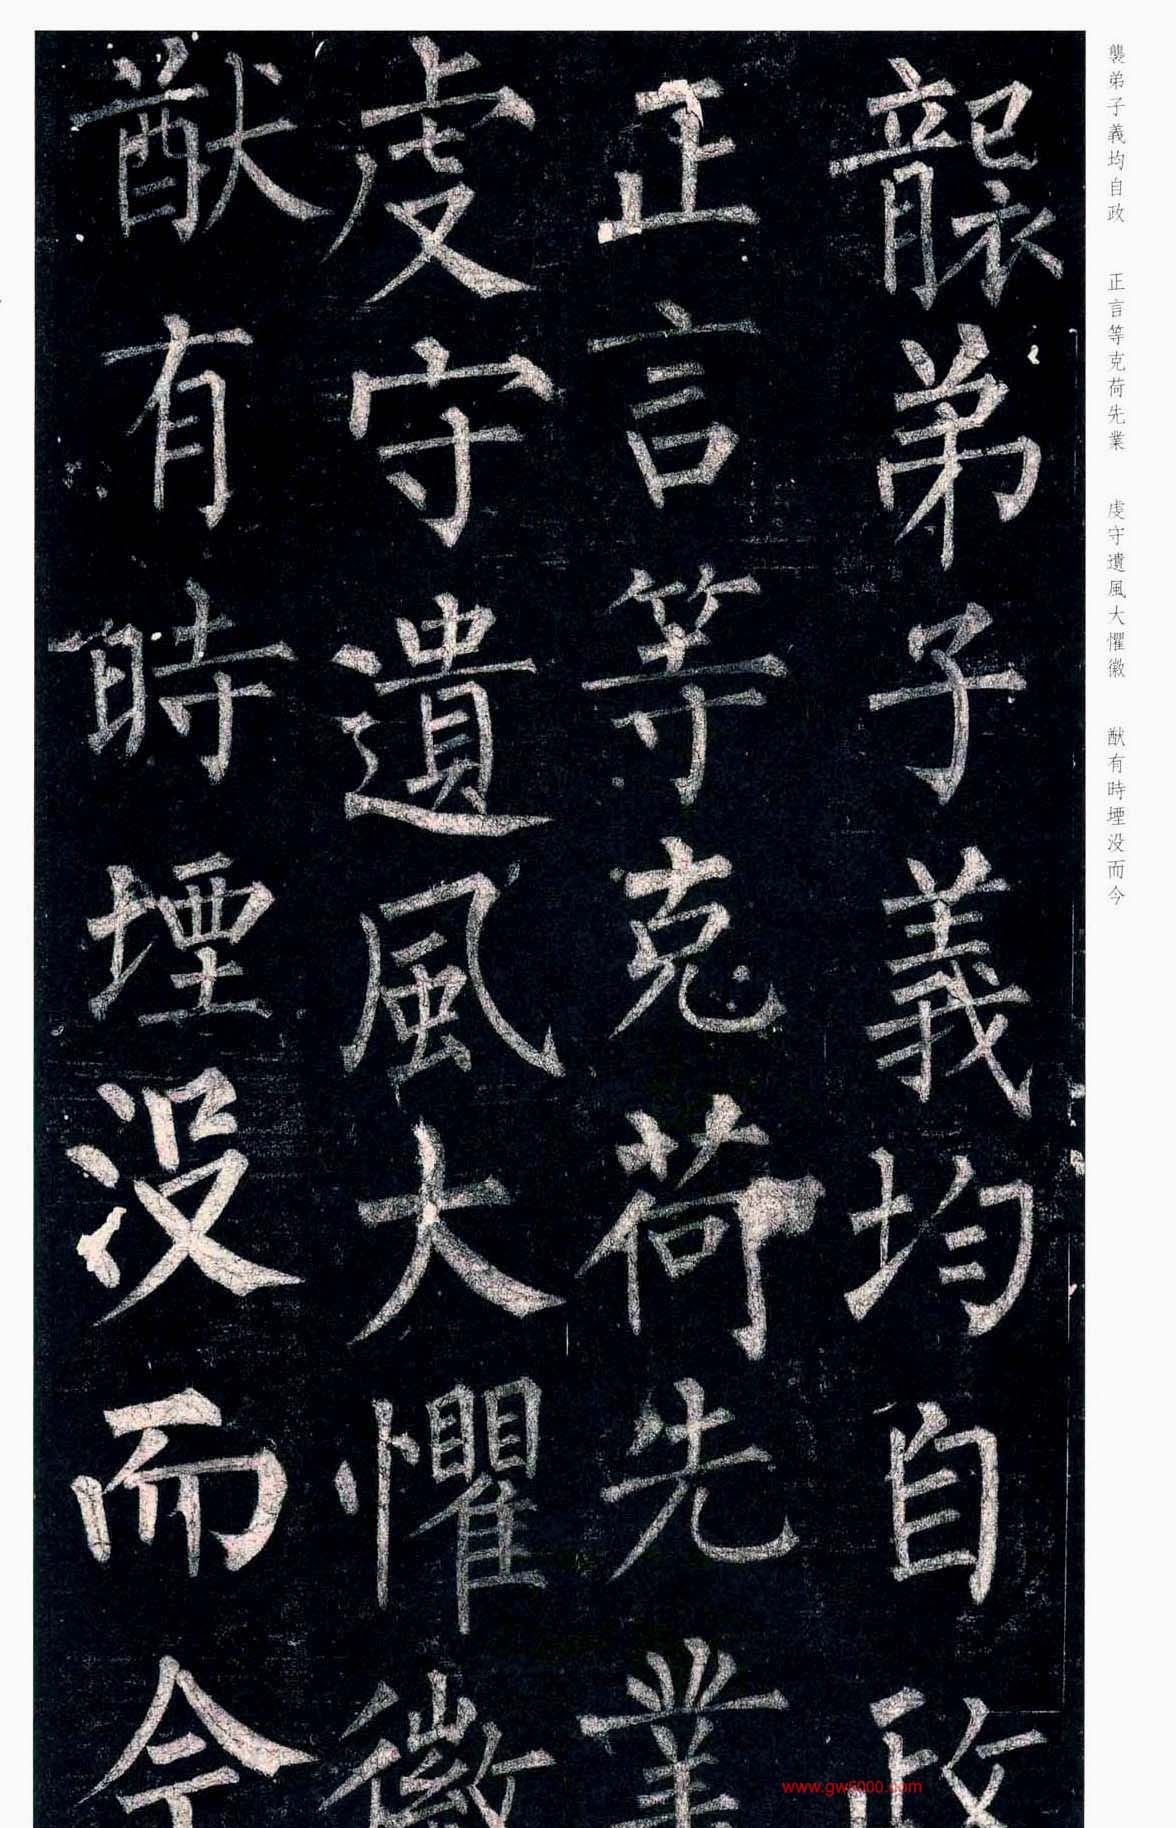 襲弟子義均自政
正言等克荷先業
虔守遺風大懼徽
猷有時堙没而今
襲弟子義均自政　正言等克荷先業　虔守遺風大懼徽　猷有時堙没而今
www.gw5000.com